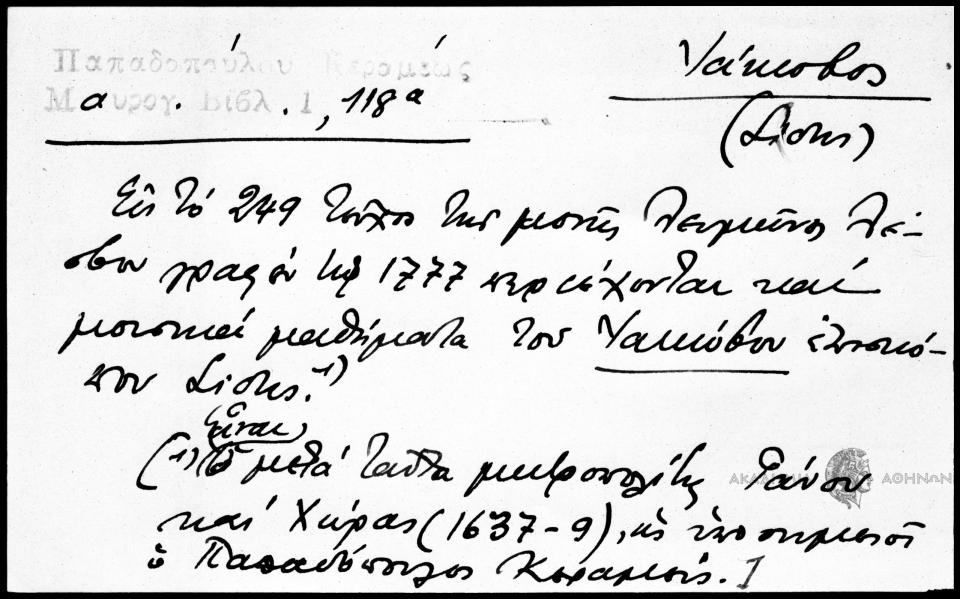 Παπαδοπούλου Κεραμέως
Μαυρογ. Βιβλ. 1, 118α
Ἰάκωβος
(Λίστης)
Εἰς τό 249 τεῦχος τῆς μονῆς Λειμῶνος Λέ-
σβου γραφέν τῷ 1777 περιέχονται καί
μουσικά μαθήματα τοῦ Ἰακώβου ἐπισκό-
που Λίστης.¹)
Εἶναι
(¹) ὁ μετά ταῦτα μητροπολίτης Γάνου
καί Χώρας (1637-9), ὡς ὑποσημειοῖ
ὁ Παπαδόπουλος Κεραμεύς.
ΑΚΑΔΗΜΙΑ ΑΘΗΝΩΝ